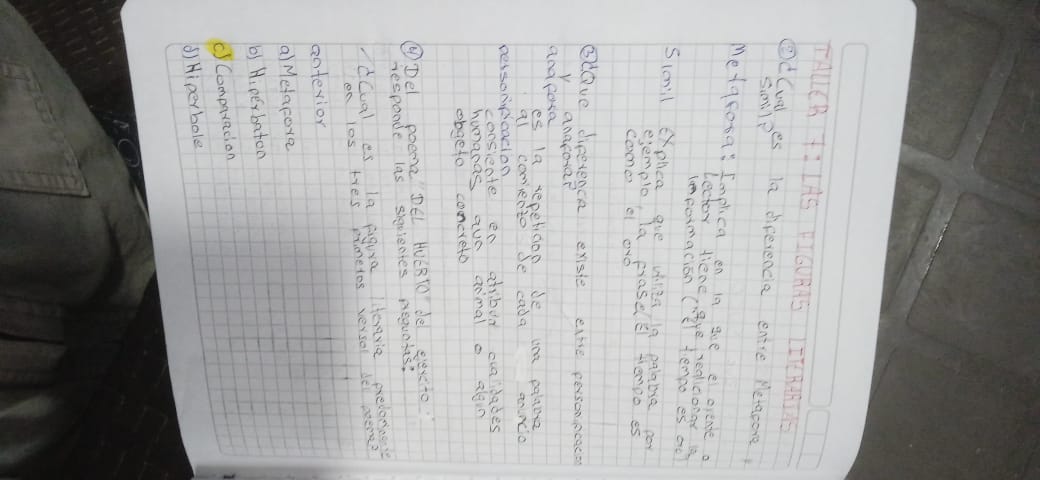 TALLER 7: LAS FIGURAS LITERARIAS
② ¿Cual es la diferencia entre Metafora y
Simil?
Metafora: Implica en la que el oyente o
Lector tiene que
informacion (El tiempo es oro)
Simil
Explica que utiliza la palabra por
ejemplo, la frase, El tiempo es
como el oro
③ ¿Que diferença existe entre personificacion
y anafora?
anafora
es la repeticion de una palabra
al comienzo de cada
personificacion
consiente en atribuir cualidades
humanas aun animal o algun
objeto concreto
④ Del poema "DEL HUERTO" del ejercito
responde las siguientes preguntas?
¿Cual es la figura literaria predominante
en los tres primeros versos del poema?
anterior
a) Metafora
b) Hiperbaton
c) Comparacion
d) Hiperbole